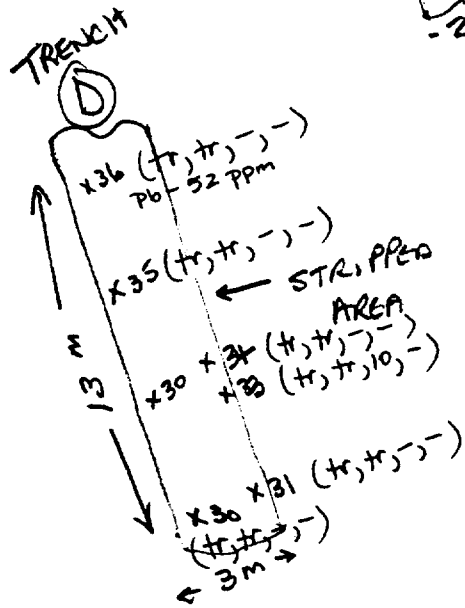 -2
TRENCH
D
x36 (tr, tr, -, -)
pb - 52 ppm
x35 (tr, tr, -, -)
← STRIPPED
AREA
x34 (tr, tr, -, -)
x33 (tr, tr, 10, -)
x30
13 m
x31 (tr, tr, -, -)
x30
(tr, tr, -, -)
← 3m →